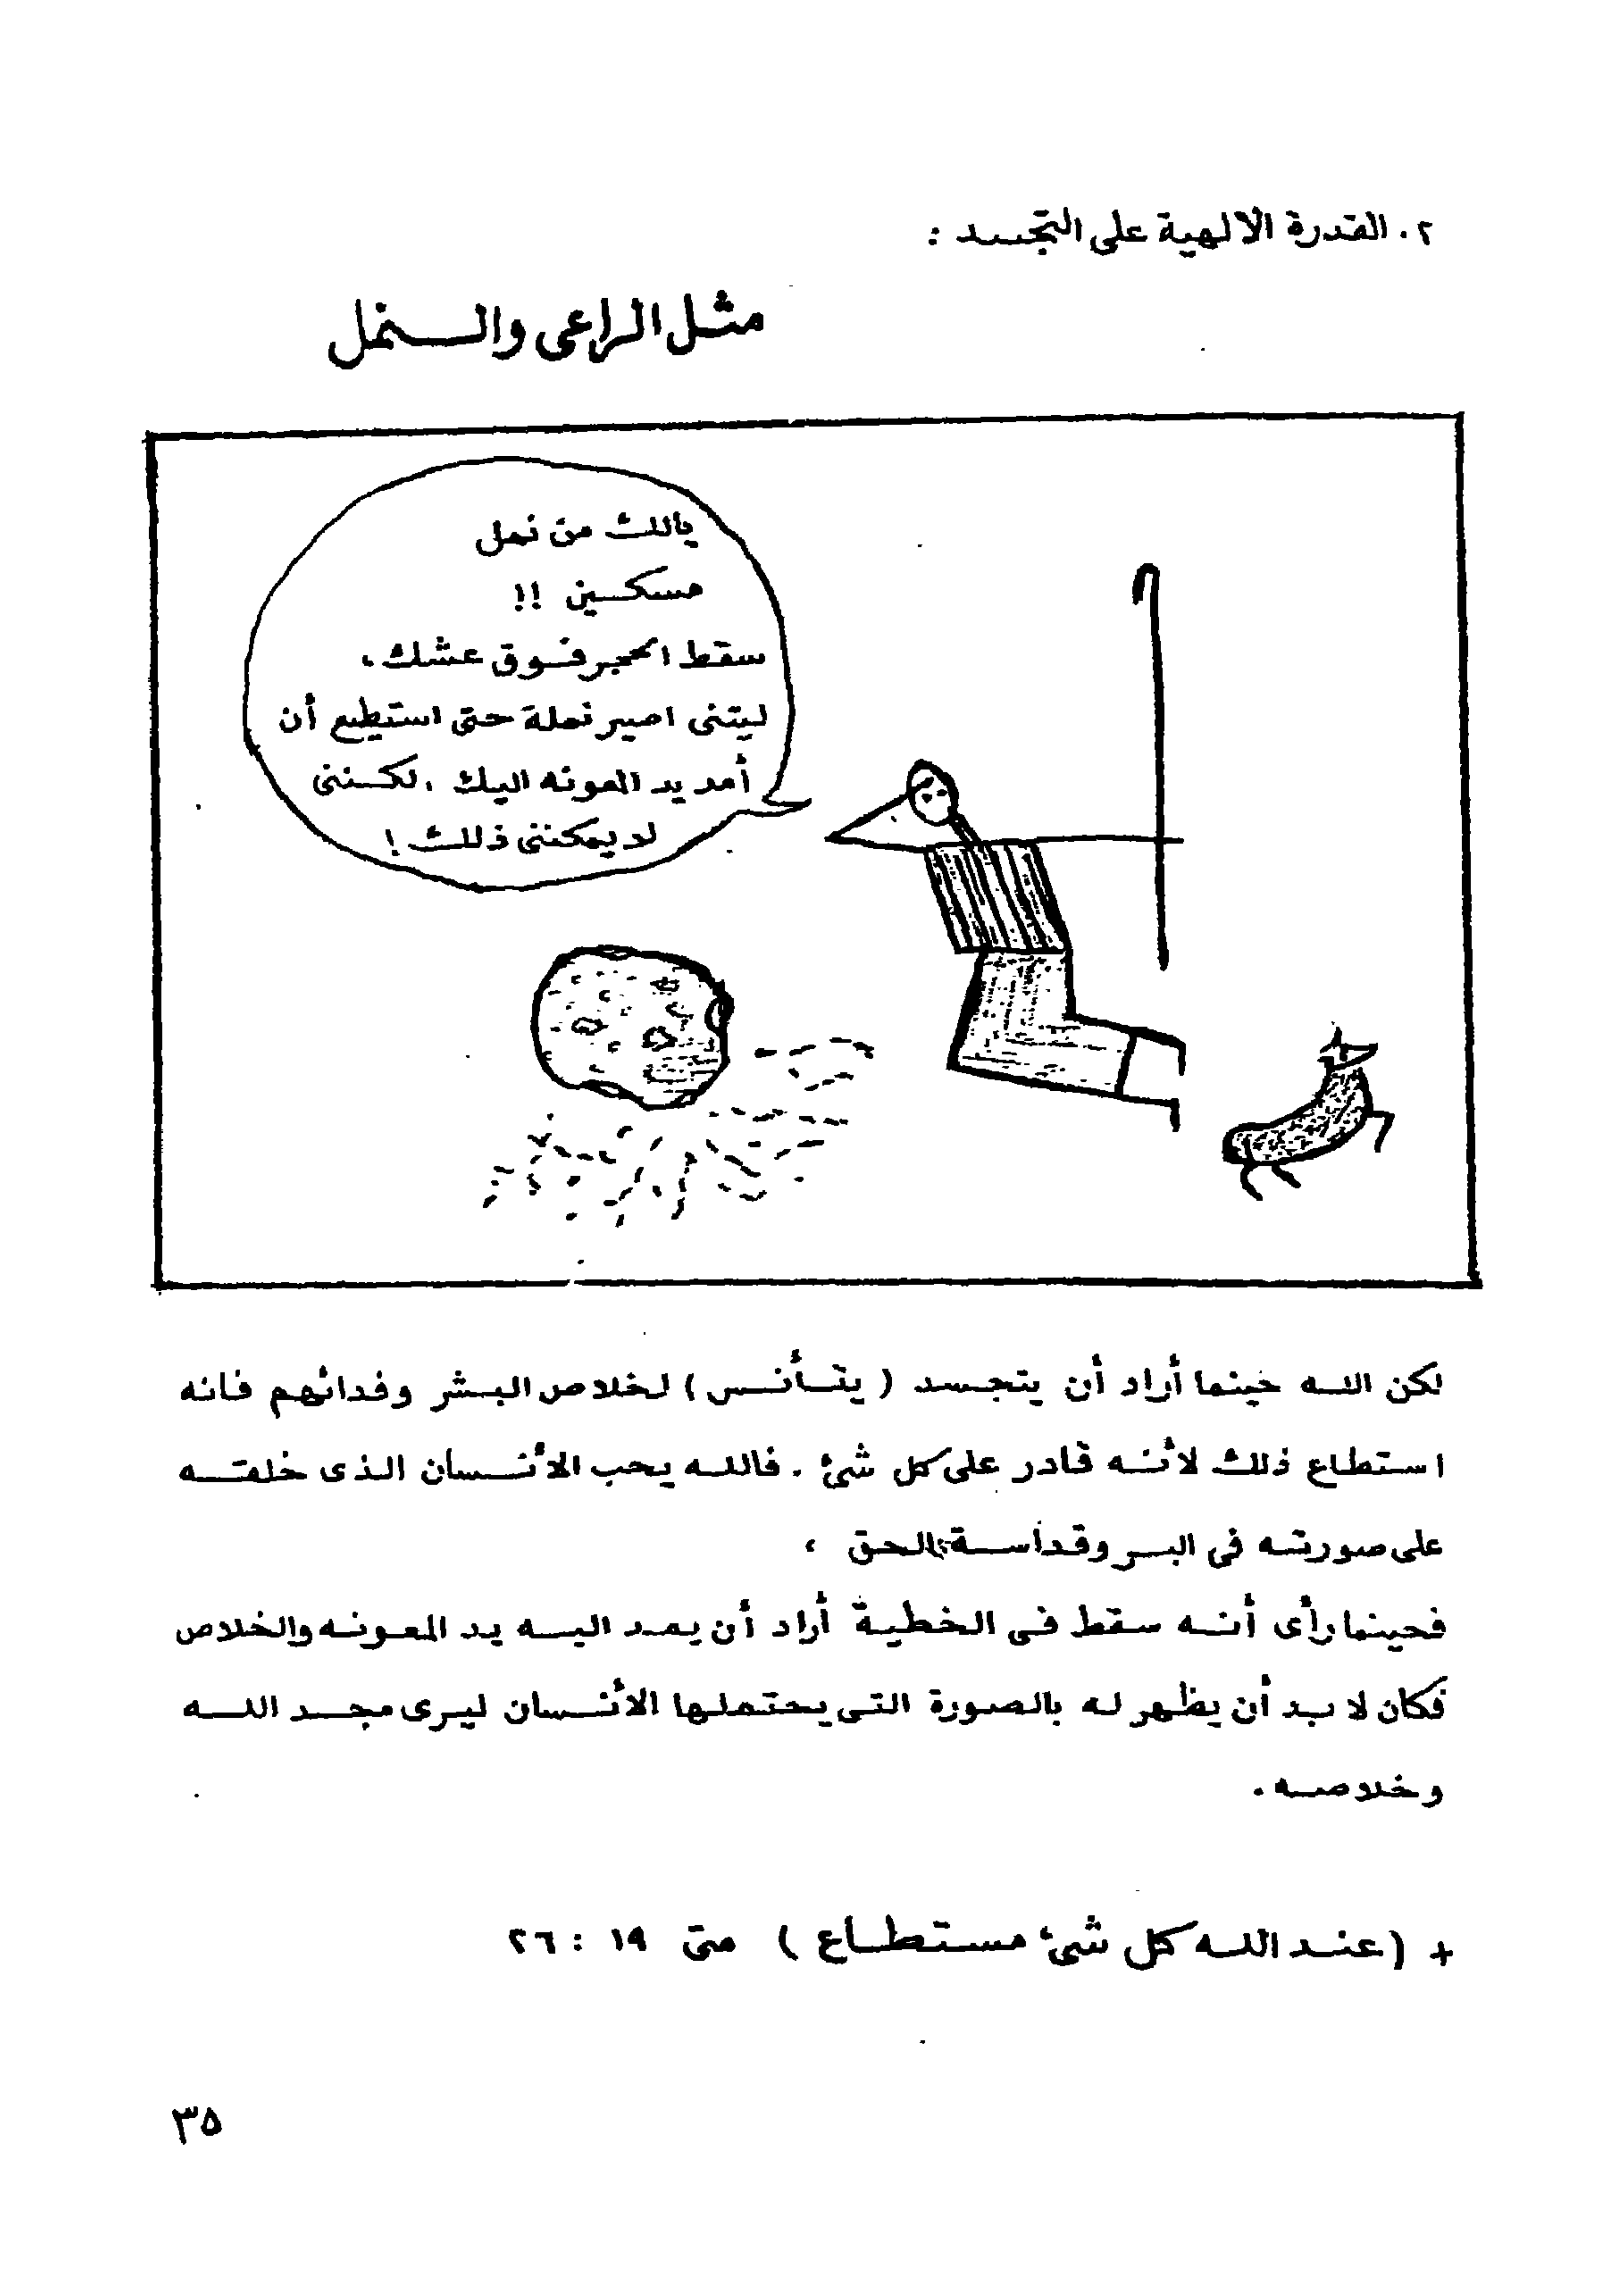 ٢. القدرة الالهية على التجسد :
مثل الراعى والنمل
ياللك من نمل
مسكين !!
سقط الحجر فوق عشك،
ليتنى اصير نملة حتى استطيع أن
أمد يد المعونه اليك . لكننى
لا يمكننى ذلك !
لكن الله حينما أراد أن يتجسد ( يتأنس ) لخلاص البشر وفدائهم فانه
استطاع ذلك لأنه قادر على كل شئ . فالله يحب الأنسان الذى خلقته
على صورته فى البر وقداسة الحق ،
فحينما رأى أنه سقط فى الخطية أراد أن يمد اليه يد المعونه والخلاص
فكان لا بد أن يظهر له بالصورة التى يحتملها الأنسان ليرى مجد الله
وخلاصه .
+ ( عند الله كل شئ مستطاع ) متى ١٩ : ٢٦
٣٥